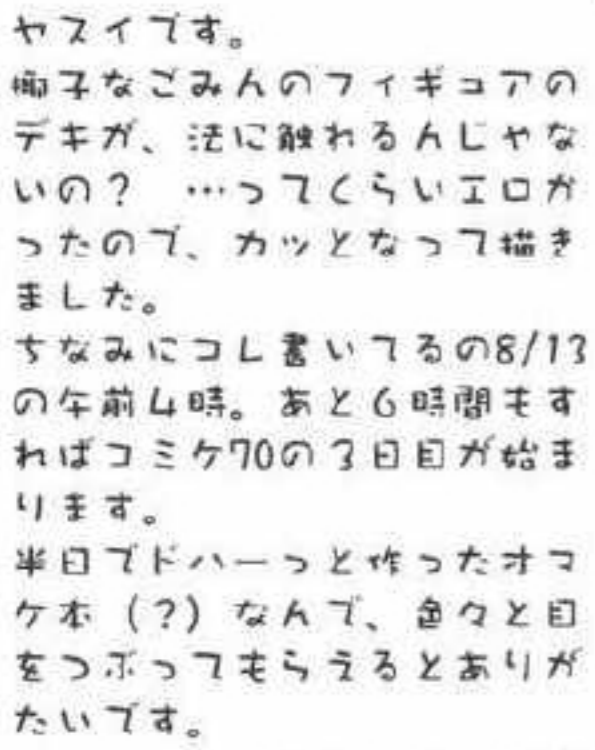 ヤスイです。
椰子なごみんのフィギュアの
デキが、法に触れるんじゃな
いの？　…ってくらいエロか
ったので、カッとなって描き
ました。
ちなみにコレ書いてるの8/13
の午前4時。あと6時間もす
ればコミケ70の3日目が始ま
ります。
半日でドハーっと作ったオマ
ケ本（？）なんで、色々と目
をつぶってもらえるとありが
たいです。